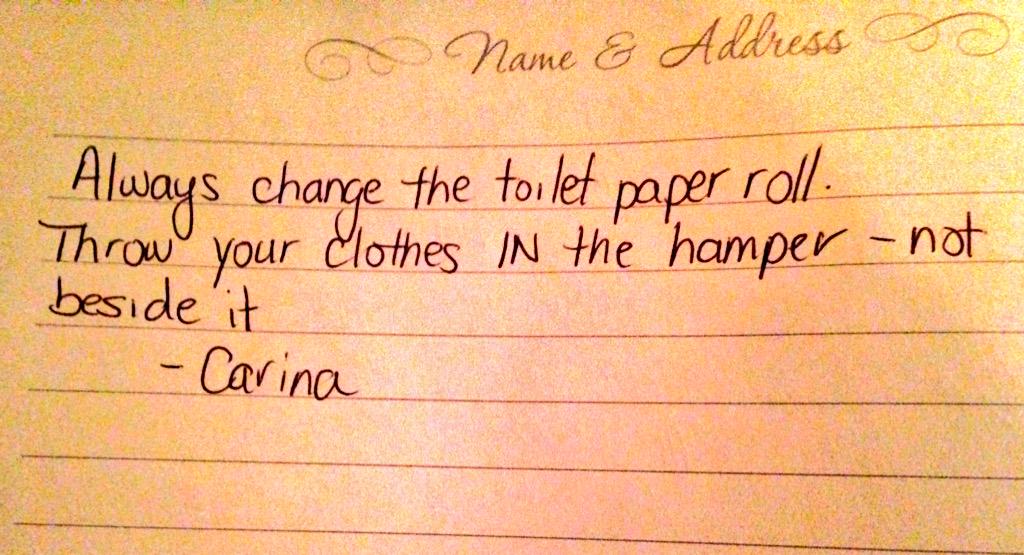 Name & Address
Always change the toilet paper roll.
Throw your clothes IN the hamper - not
beside it
- Carina